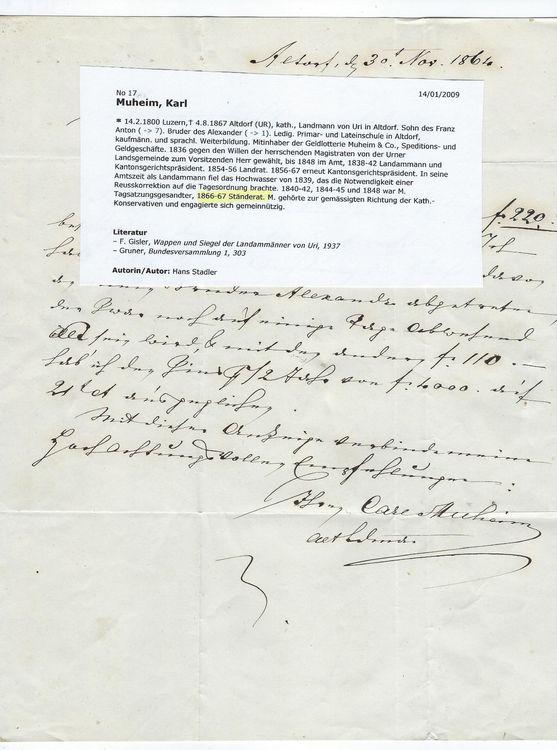 Altorf, d 30t Nov. 1864.
No 17
14/01/2009
Muheim, Karl
* 14.2.1800 Luzern,† 4.8.1867 Altdorf (UR), kath., Landmann von Uri in Altdorf. Sohn des Franz
Anton ( -> 7). Bruder des Alexander ( -> 1). Ledig. Primar- und Lateinschule in Altdorf,
kaufmänn. und sprachl. Weiterbildung. Mitinhaber der Geldlotterie Muheim & Co., Speditions- und
Geldgeschäfte. 1836 gegen den Willen der herrschenden Magistraten von der Urner
Landsgemeinde zum Vorsitzenden Herr gewählt, bis 1848 im Amt, 1838-42 Landammann und
Kantonsgerichtspräsident. 1854-56 Landrat. 1856-67 erneut Kantonsgerichtspräsident. In seine
Amtszeit als Landammann fiel das Hochwasser von 1839, das die Notwendigkeit einer
Reusskorrektion auf die Tagesordnung brachte. 1840-42, 1844-45 und 1848 war M.
Tagsatzungsgesandter, 1866-67 Ständerat. M. gehörte zur gemässigten Richtung der Kath.-
Konservativen und engagierte sich gemeinnützig.
Literatur
– F. Gisler, Wappen und Siegel der Landammänner von Uri, 1937
– Gruner, Bundesversammlung 1, 303
Autorin/Autor: Hans Stadler
f. 220.
Ich
davon
Bruder Alexander abgetreten
der zwar noch auf einige Tage abwesend
sein wird, & mit den andern f. 110. —
hab' ich den Zins p 1/2 Jahr von f. 4000. auf
21t ct ausgeglichen.
Mit dieser Anzeige verbinde meine
Hochachtungsvollen Empfehlungen.
Ihr Carl Muheim
alt Ldma.